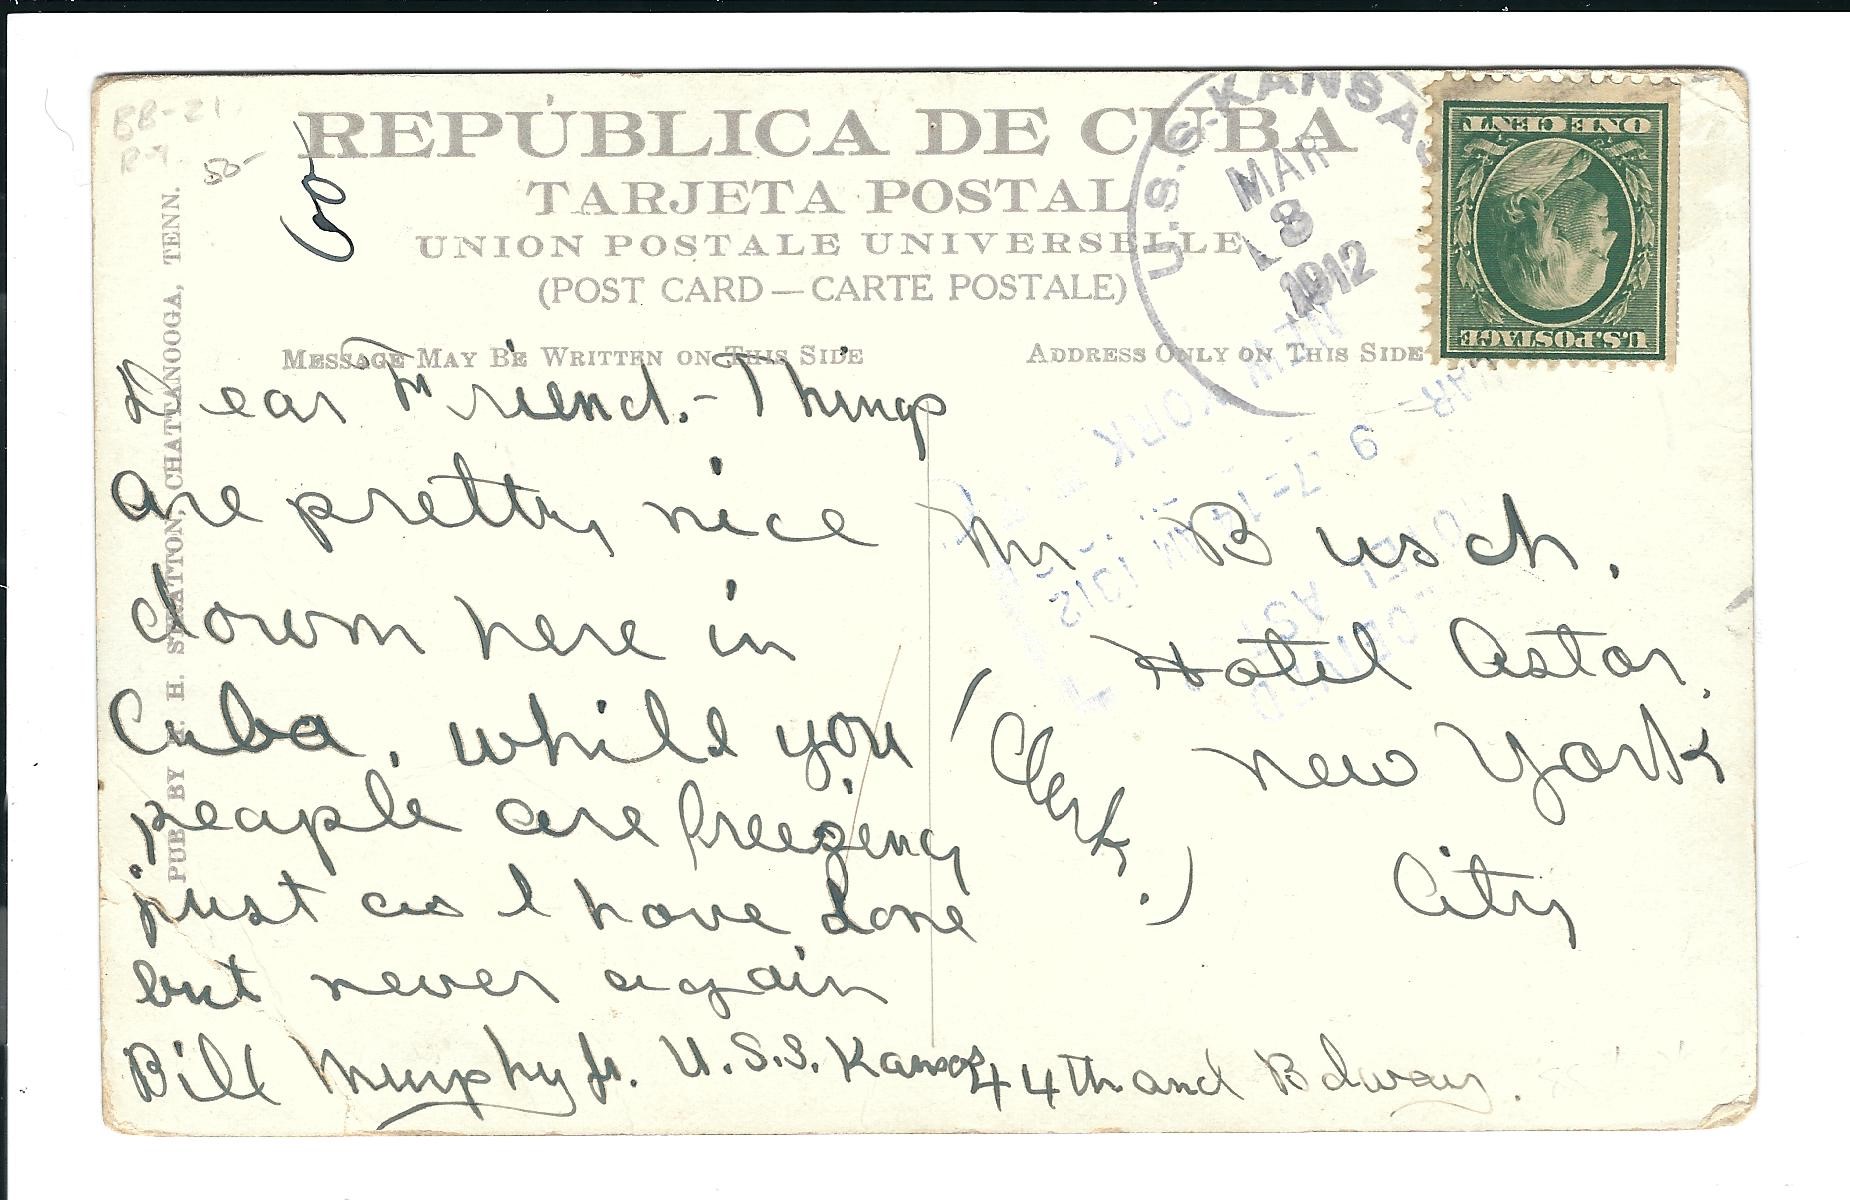 BB-21
50-
60
REPÚBLICA DE CUBA
TARJETA POSTAL
UNION POSTALE UNIVERSELLE
(POST CARD—CARTE POSTALE)
MESSAGE MAY BE WRITTEN ON THIS SIDE
ADDRESS ONLY ON THIS SIDE
PUB BY H. STRATTON, CHATTANOOGA, TENN.
U.S.S. KANSAS
MAR
8
1912
U.S. POSTAGE
ONE CENT
NEW YORK
MAR 9
7-14
AM 1912
RECEIVED
HOTEL AST
Dear Friend.- Things
are pretty nice
down here in
Cuba, while you
people are freezing
just as I have done
but never again
Bill Murphy Jr. U.S.S. Kansas
Mr Busch.
Hotel Astor,
(Clerk.)
New York
City
44th and Bdway.